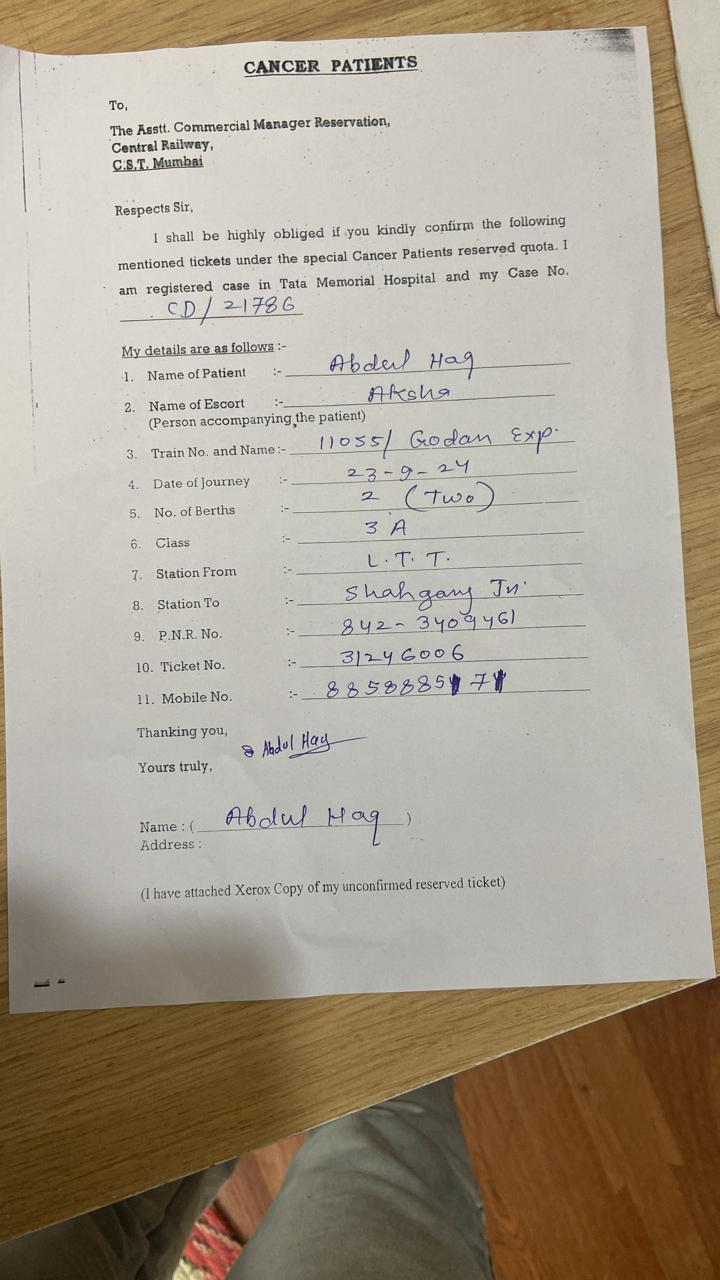 CANCER PATIENTS
To,
The Asstt. Commercial Manager Reservation,
Central Railway,
C.S.T. Mumbai
Respects Sir,
I shall be highly obliged if you kindly confirm the following
mentioned tickets under the special Cancer Patients reserved quota. I
am registered case in Tata Memorial Hospital and my Case No.
CD/21786
My details are as follows :-
1. Name of Patient :- Abdul Haq
2. Name of Escort :- Aksha
(Person accompanying the patient)
3. Train No. and Name :- 11055/ Godan Exp.
4. Date of Journey :- 23-9-24
5. No. of Berths :- 2 (Two)
6. Class :- 3 A
7. Station From :- L.T.T.
8. Station To :- Shahganj Jn.
9. P.N.R. No. :- 842-3409461
10. Ticket No. :- 31246006
11. Mobile No. :-
Thanking you,
Abdul Haq
Yours truly,
Name : ( Abdul Haq )
Address :
(I have attached Xerox Copy of my unconfirmed reserved ticket)